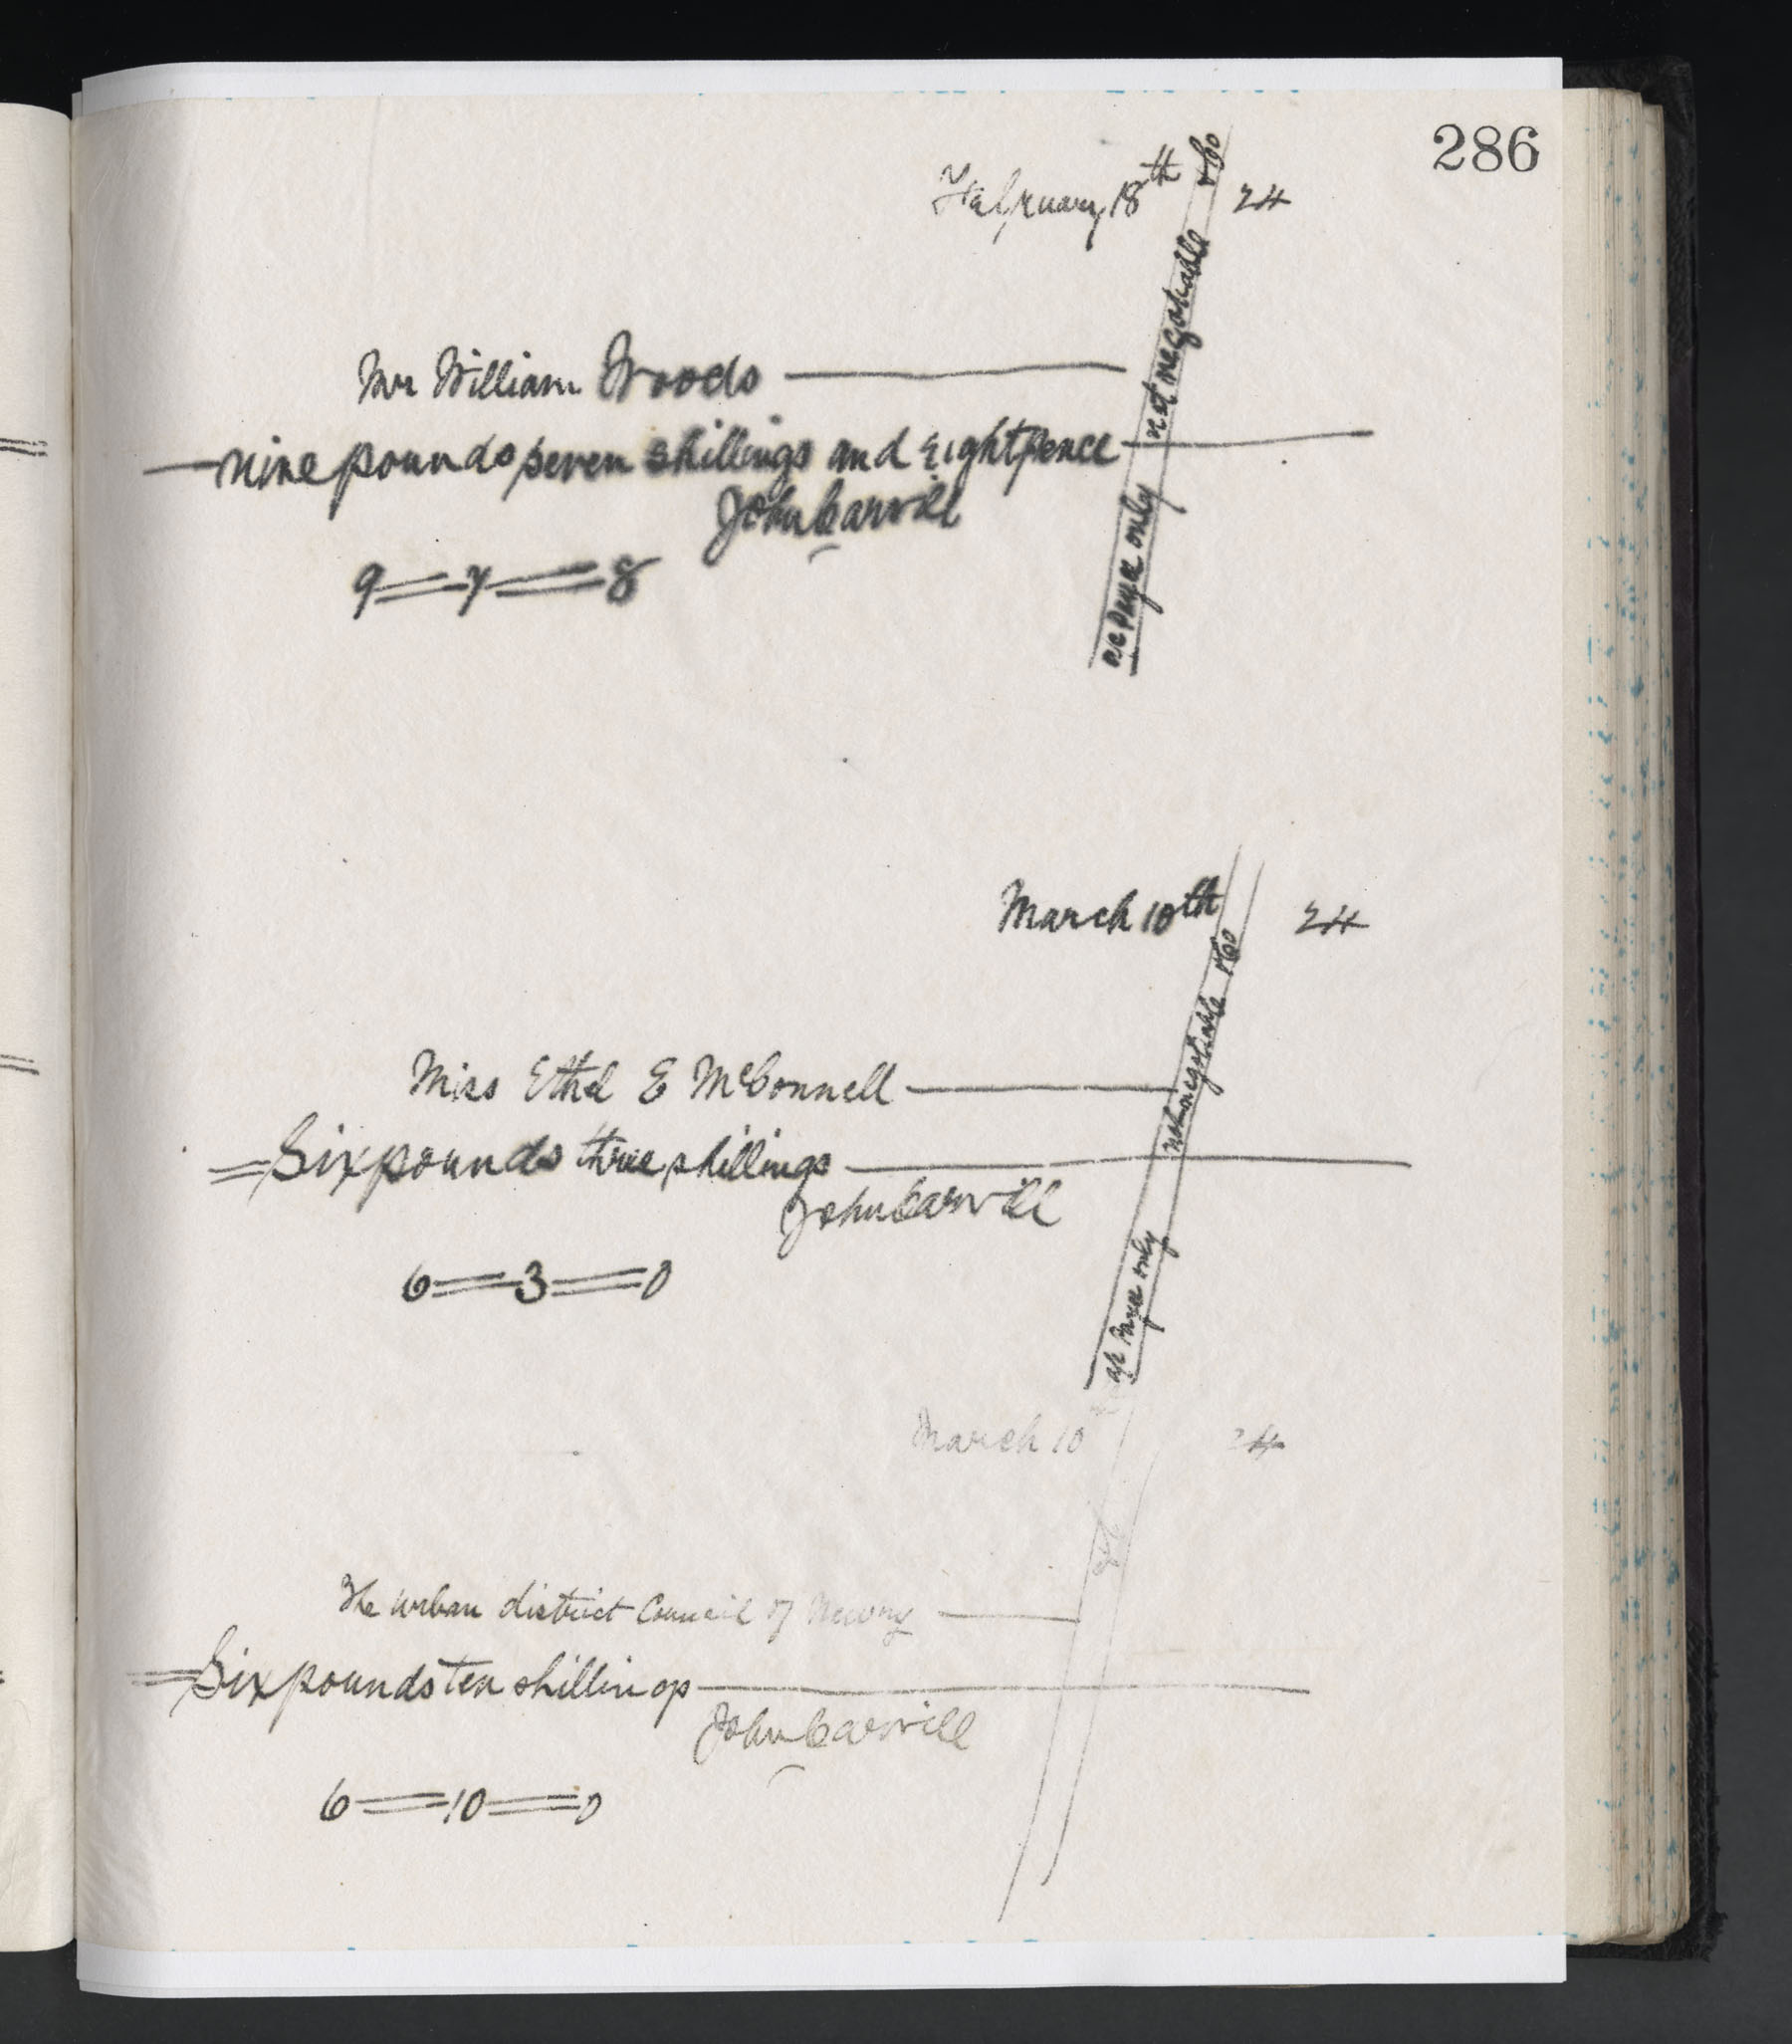 286
February 18th 24
Mr William Woods
nine pounds seven shillings and eightpence
John Carvill
9 = 7 = 8
ac Payee only not negotiable & Co
March 10th 24
Miss Ethel E McConnell
Six pounds three shillings
John Carvill
6 = 3 = 0
a/c Payee only not negotiable & Co
March 10 24
The urban district Council of Newry
Six pounds Ten shillings
John Carvill
6 = 10 = 0